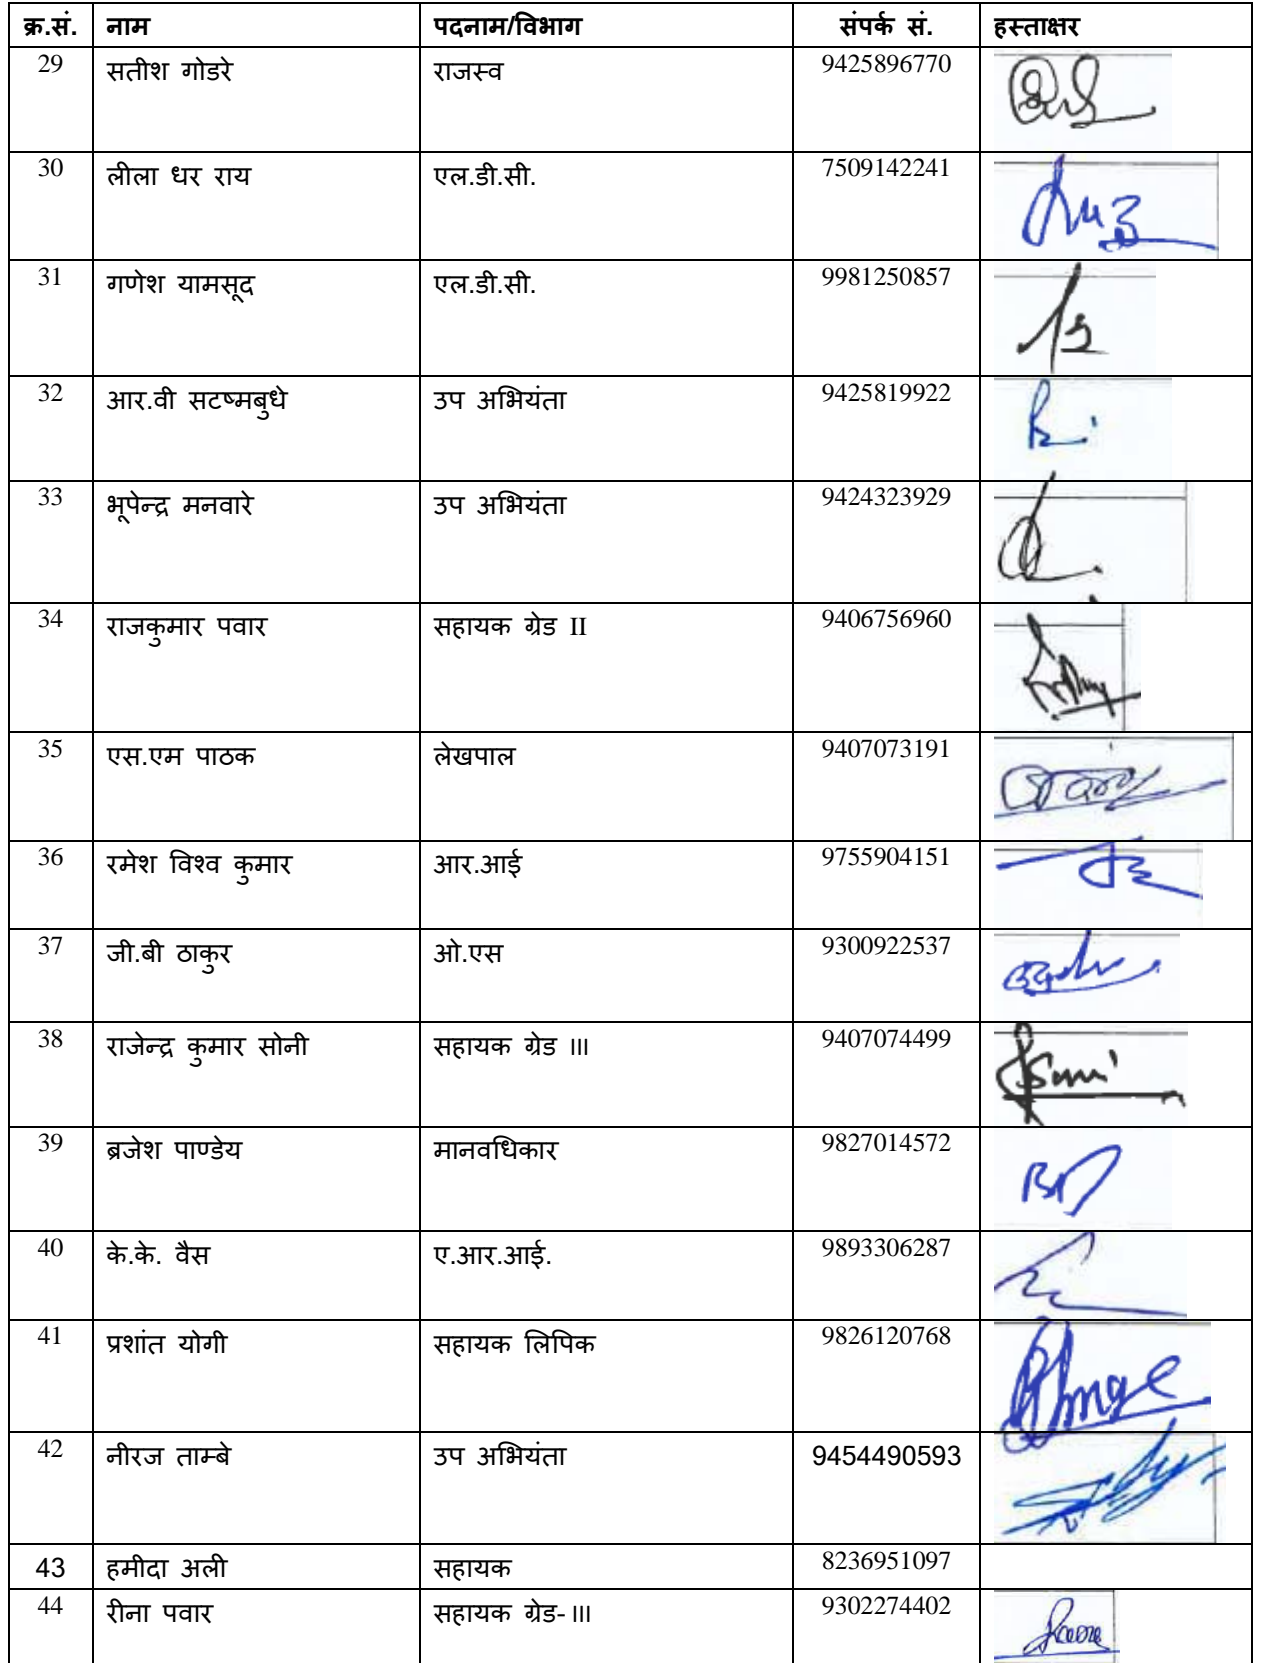 क्र.सं. नाम पदनाम/विभाग संपर्क सं. हस्ताक्षर
29 सतीश गोडरे राजस्व 9425896770
30 लीला धर राय एल.डी.सी. 7509142241
31 गणेश यामसूद एल.डी.सी. 9981250857
32 आर.वी सटष्मबुधे उप अभियंता 9425819922
33 भूपेन्द्र मनवारे उप अभियंता 9424323929
34 राजकुमार पवार सहायक ग्रेड II 9406756960
35 एस.एम पाठक लेखपाल 9407073191
36 रमेश विश्व कुमार आर.आई 9755904151
37 जी.बी ठाकुर ओ.एस 9300922537
38 राजेन्द्र कुमार सोनी सहायक ग्रेड III 9407074499
39 ब्रजेश पाण्डेय मानवधिकार 9827014572
40 के.के. वैस ए.आर.आई. 9893306287
41 प्रशांत योगी सहायक लिपिक 9826120768
42 नीरज ताम्बे उप अभियंता 9454490593
43 हमीदा अली सहायक 8236951097
44 रीना पवार सहायक ग्रेड- III 9302274402